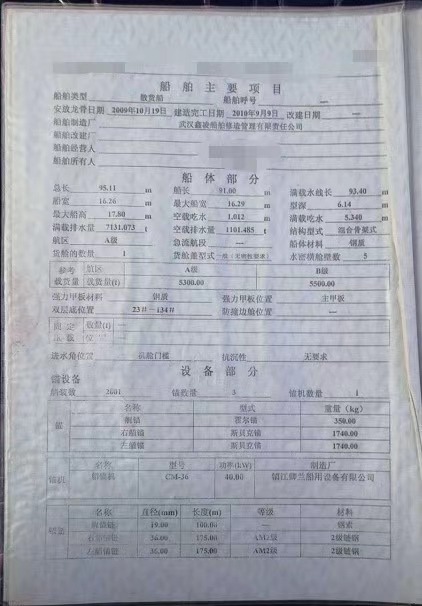 船舶主要项目
船舶类型 散货船 船舶呼号 —
安放龙骨日期 2009年10月19日 建造完工日期 2010年9月9日 改建日期 —
船舶制造厂 武汉鑫凌船舶修造管理有限责任公司
船舶改建厂
船舶经营人
船舶所有人
船体部分
总长 95.11 m 船长 91.00 m 满载水线长 93.40 m
船宽 16.26 m 最大船宽 16.29 m 型深 6.14 m
最大船高 17.80 m 空载吃水 1.012 m 满载吃水 5.340 m
满载排水量 7131.073 t 空载排水量 1101.485 t 结构型式 混合骨架式
航区 A级 急流航段 — 船体材料 钢质
货舱的数量 1 货舱盖型式 水密横舱壁数 5
参考 航区 A级 B级
载货量 载货量(t) 5300.00 5500.00
强力甲板材料 钢质 强力甲板位置 主甲板
双层底位置 23#—134# 防撞边舱位置 —
数量(t) —
位置 —
进水角位置 抗沉性 无要求
设备部分
锚设备
锚数量 3 锚机数量 1
名称 型式 重量(kg)
锚 艉锚 霍尔锚 350.00
右艏锚 斯贝克锚 1740.00
左艏锚 斯贝克锚 1740.00
名称 型号 功率(kW) 制造厂
锚机 CM-36 40.00
名称 直径(mm) 长度(m) 等级 材料
19.00 100.00 — 钢索
36.00 175.00 AM2级 2级链钢
36.00 175.00 AM2级 2级链钢